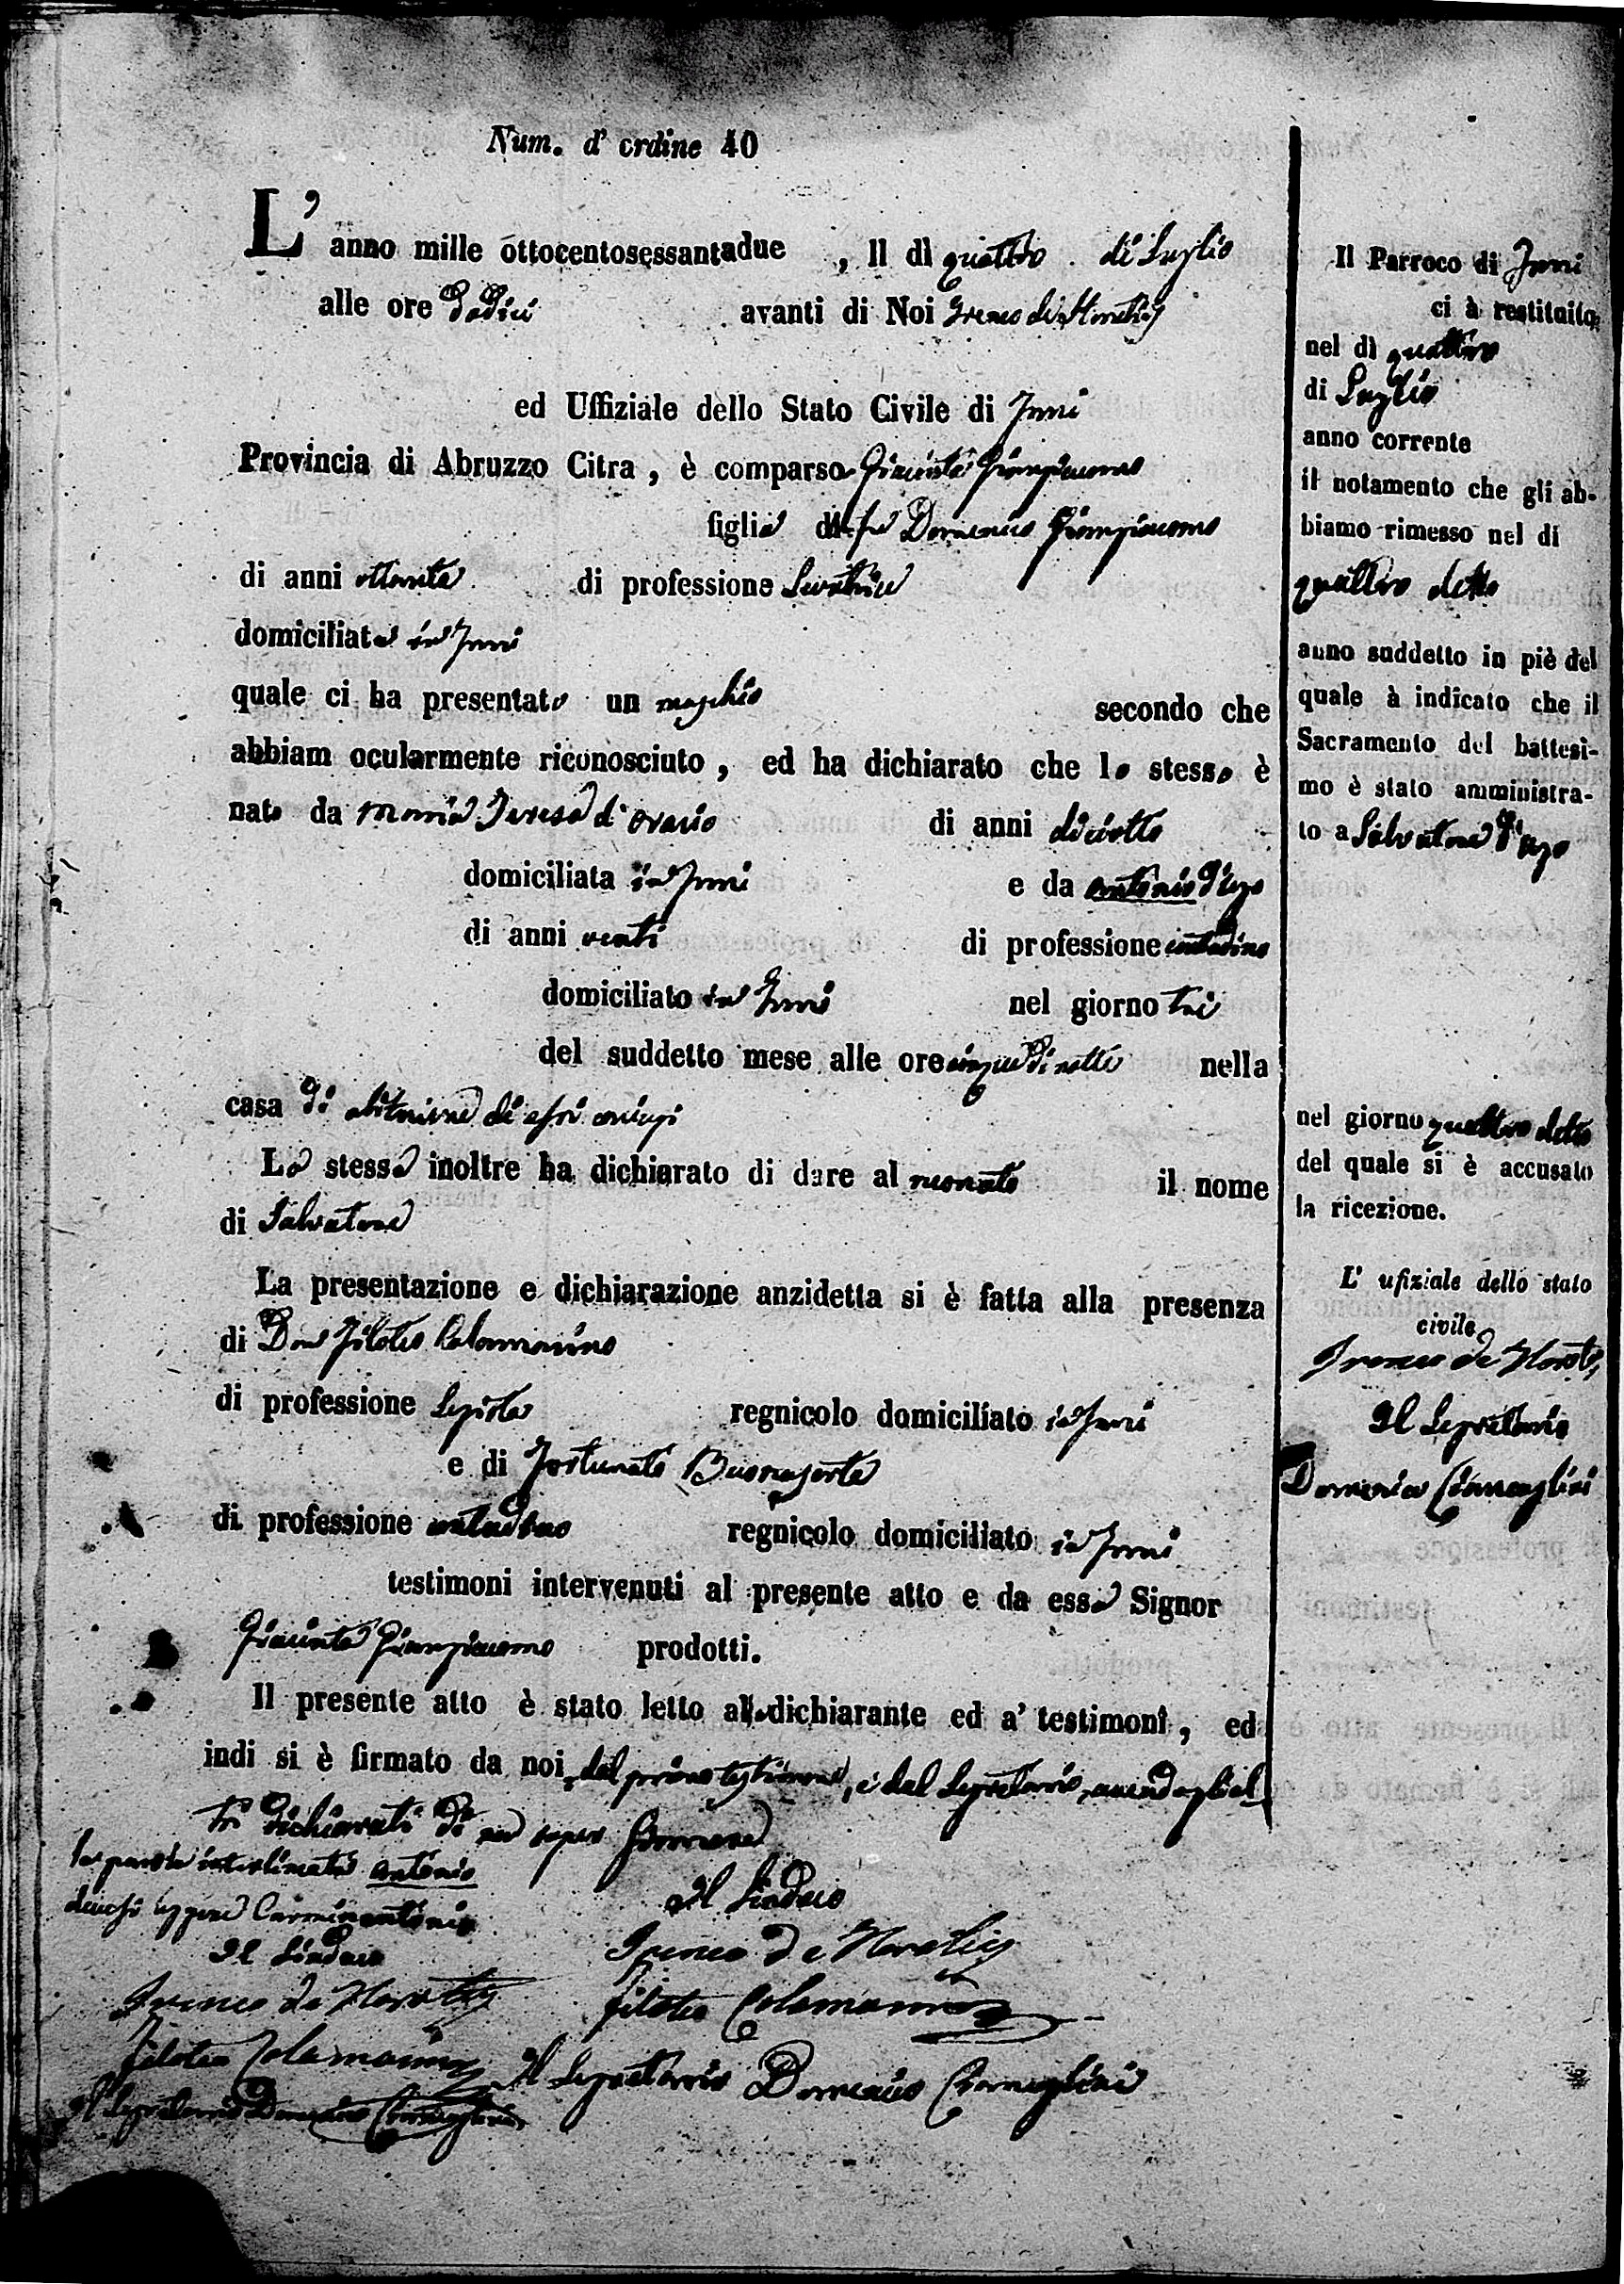 Num. d' ordine 40
L' anno mille ottocentosessantadue , Il dì quattro di Luglio
alle ore dodici avanti di Noi Ireneo de Horatiis
ed Uffiziale dello Stato Civile di Furci
Provincia di Abruzzo Citra , è comparsa Giacinta Giangiacomo
figlia del fu Domenico Giangiacomo
di anni ottanta di professione Levatrice
domiciliata in Furci
quale ci ha presentato un maschio secondo che
abbiam ocularmente riconosciuto , ed ha dichiarato che lo stesso è
nato da Maria Teresa d'Orazio di anni diciotto
domiciliata in Furci e da Antonio d'Ugo
di anni venti di professione contadino
domiciliato in Furci nel giorno tre
del suddetto mese alle ore cinque di notte nella
casa di abitazione di essi coniugi
La stessa inoltre ha dichiarato di dare al neonato il nome
di Salvatore
La presentazione e dichiarazione anzidetta si è fatta alla presenza
di Don Filoteo Colamarino
di professione Legista regnicolo domiciliato in Furci
e di Fortunato Buonaforte
di professione contadino regnicolo domiciliato in Furci
testimoni intervenuti al presente atto e da essa Signor
Giacinta Giangiacomo prodotti.
Il presente atto è stato letto alla dichiarante ed a' testimonî , ed
indi si è firmato da noi, dal primo testimone, e dal Segretario, avendo gli al-
tri dichiarati di non saper firmare
la parola interlineata Antonio
devesi leggere Carminantonio
Il Sindaco
Ireneo de Horatiis
Filoteo Colamarino
Il Segretario Domenico Ciancaglini
Il Sindaco
Ireneo de Horatiis
Filoteo Colamarino
Il Segretario Domenico Ciancaglini
Il Parroco di Furci
ci à restituito
nel dì quattro
di Luglio
anno corrente
il notamento che gli ab-
biamo rimesso nel di
quattro detto
anno suddetto in piè del
quale à indicato che il
Sacramento del battesi-
mo è stato amministra-
to a Salvatore d'Ugo
nel giorno quattro detto
del quale si è accusato
la ricezione.
L' ufiziale dello stato
civile
Ireneo de Horatiis
Il Segretario
Domenico Ciancaglini